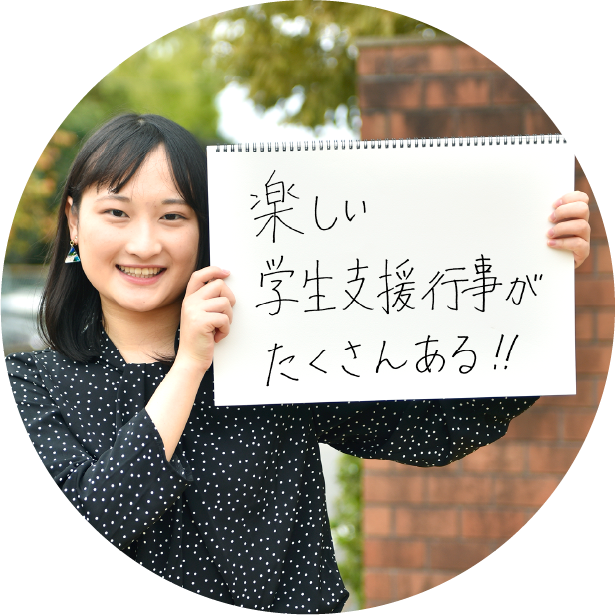 楽しい
学生支援行事が
たくさんある!!